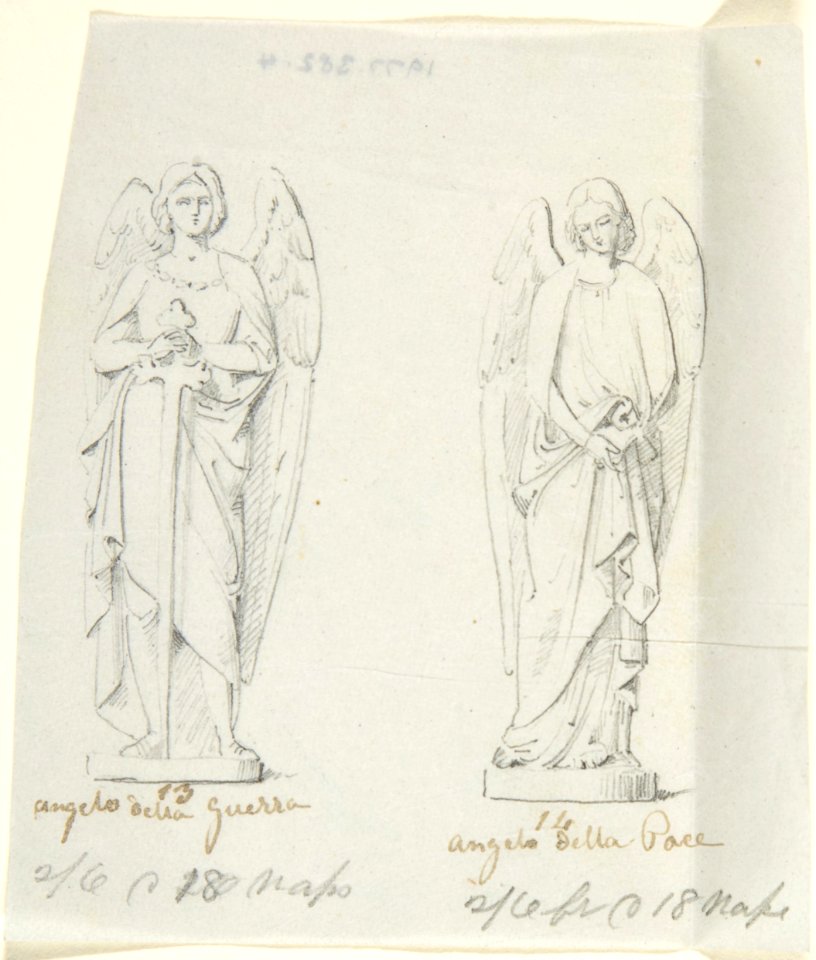 1977.382.4
13
angelo della Guerra
2/6 18 naps
14
angelo della Pace
2/6 fr 18 nap